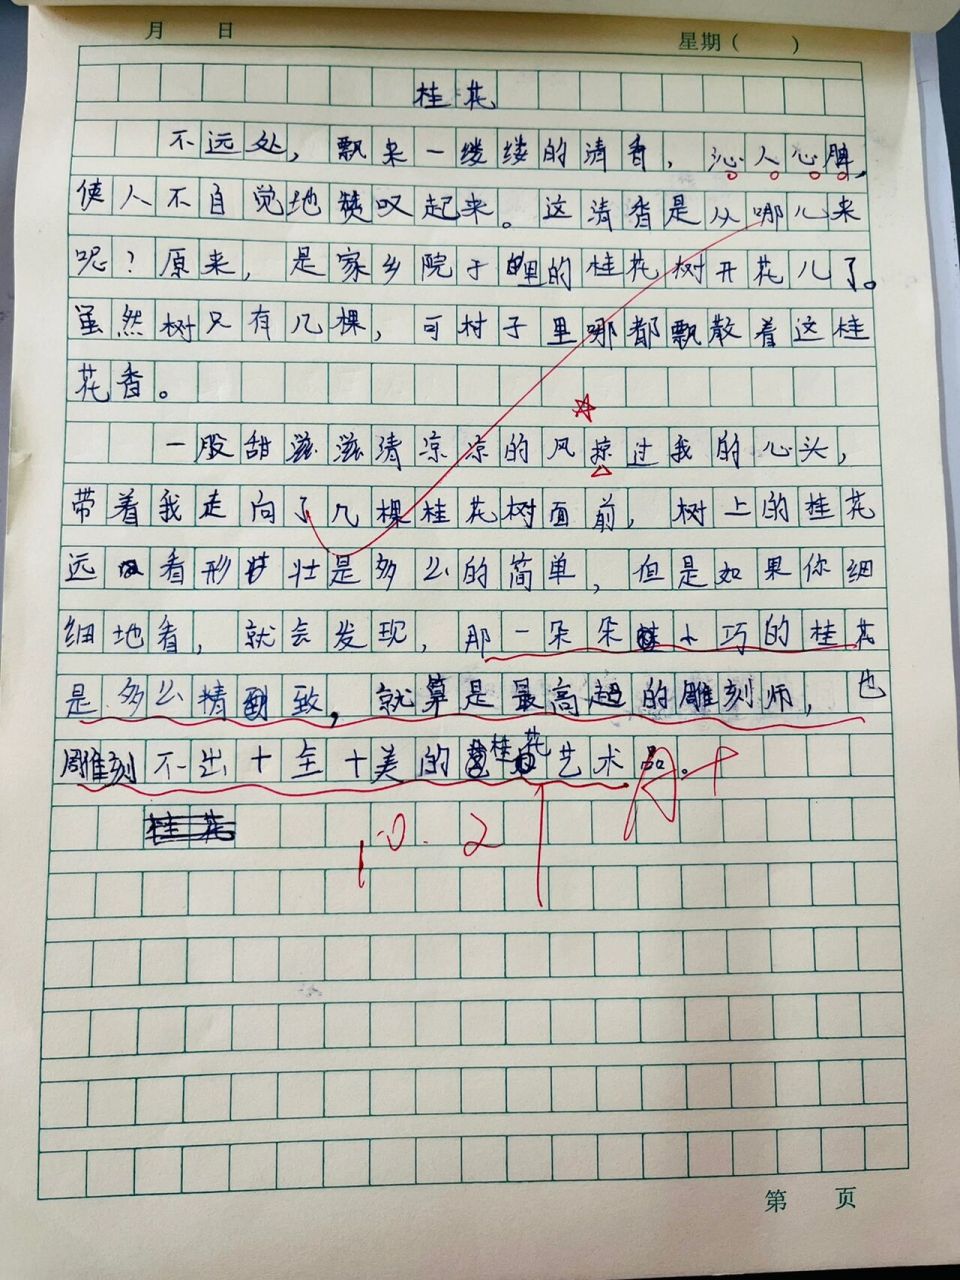 月 日 星期( )
桂花
不远处，飘来一缕缕的清香，沁人心脾，
使人不自觉地赞叹起来。这清香是从哪儿来
呢？原来，是家乡院子里的桂花树开花儿了。
虽然树只有几棵，可村子里哪都飘散着这桂
花香。
一股甜滋滋清凉凉的风掠过我的心头，
带着我走向了几棵桂花树面前，树上的桂花
远看形状是多么的简单，但是如果你细
细地看，就会发现，那一朵朵小巧的桂花
是多么精致，就算是最高超的雕刻师，也
雕刻不出十全十美的桂花艺术品。
桂花
10.21
第 页